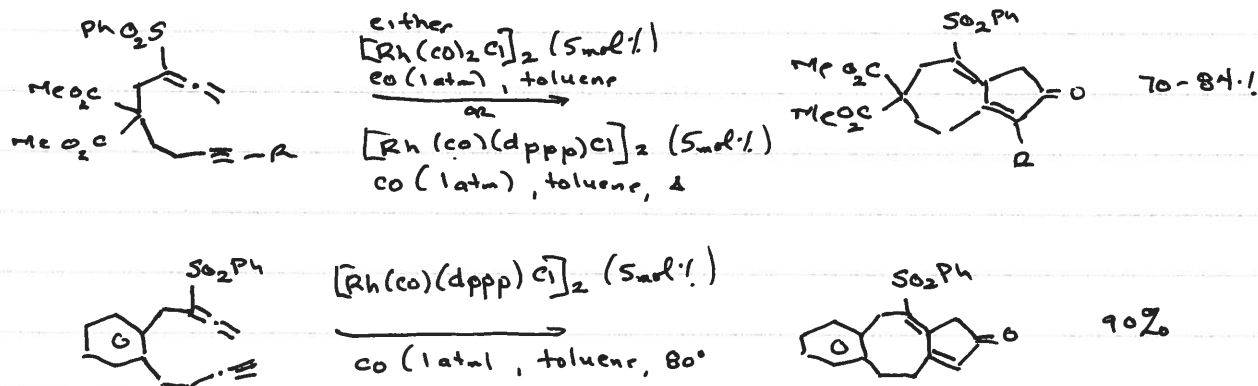 PhO2S
either
[Rh(CO)2Cl]2 (5mol%)
CO (1atm), toluene
or
[Rh(CO)(dppp)Cl]2 (5mol%)
CO (1atm), toluene, Δ
MeO2C
MeO2C
R
SO2Ph
MeO2C
MeO2C
O
R
70-84%
SO2Ph
[Rh(CO)(dppp)Cl]2 (5mol%)
CO (1atm), toluene, 80°
SO2Ph
O
90%